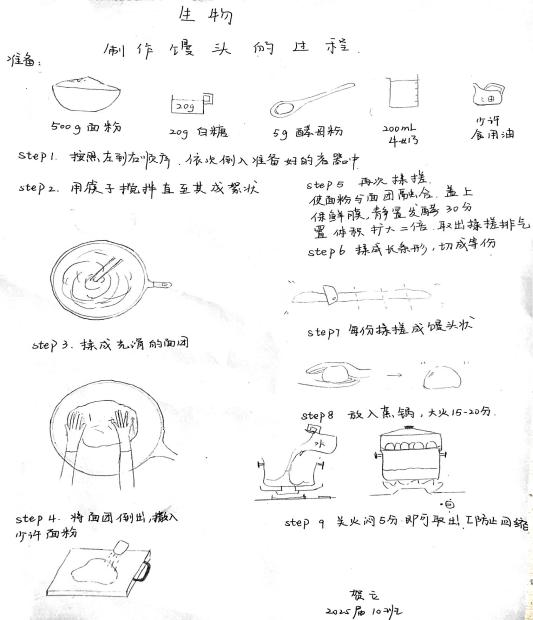 生物
制作馒头的过程.
准备:
20g
油
500g 面粉
20g 白糖
5g 酵母粉
200mL
牛奶
少许
食用油
step 1. 按照左到右顺序, 依次倒入准备好的容器中.
step 2. 用筷子搅拌直至其成絮状
step 3. 揉成光滑的面团
step 4. 将面团倒出,撒入
少许面粉
step 5 再次揉搓.
使面粉与面团融合. 盖上
保鲜膜,静置发酵30分
置体积扩大二倍. 取出揉搓排气
step 6 揉成长条形,切成等份
step 7 每份揉搓成馒头状
step 8 放入蒸锅,大火15-20分.
水
step 9 关火闷5分即可取出!防止回缩
2025届 10班